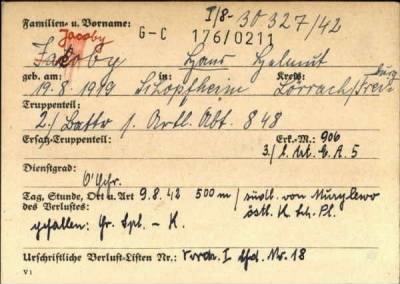 I/8-30327/42
Familien- u. Vorname:
Jacoby
G-C 176/0211
Jacoby Hans Helmut
geb. am: in: Kreis:
19.8.1919 Schopfheim Lörrach/Freiburg
Truppenteil:
2./Battr. 1. Artl. Abt. 848
Ersatz-Truppenteil: Erk.-M.: 906
3./ A. 5
Dienstgrad:
O'Gefr.
Tag, Stunde, Ort u. Art 9.8.42 500 m / südl. von
des Verlustes: östl. K
gefallen: Gr. Spl. - K.
Urschriftliche Verlust-Listen Nr.: I lfd. Nr. 18
V1